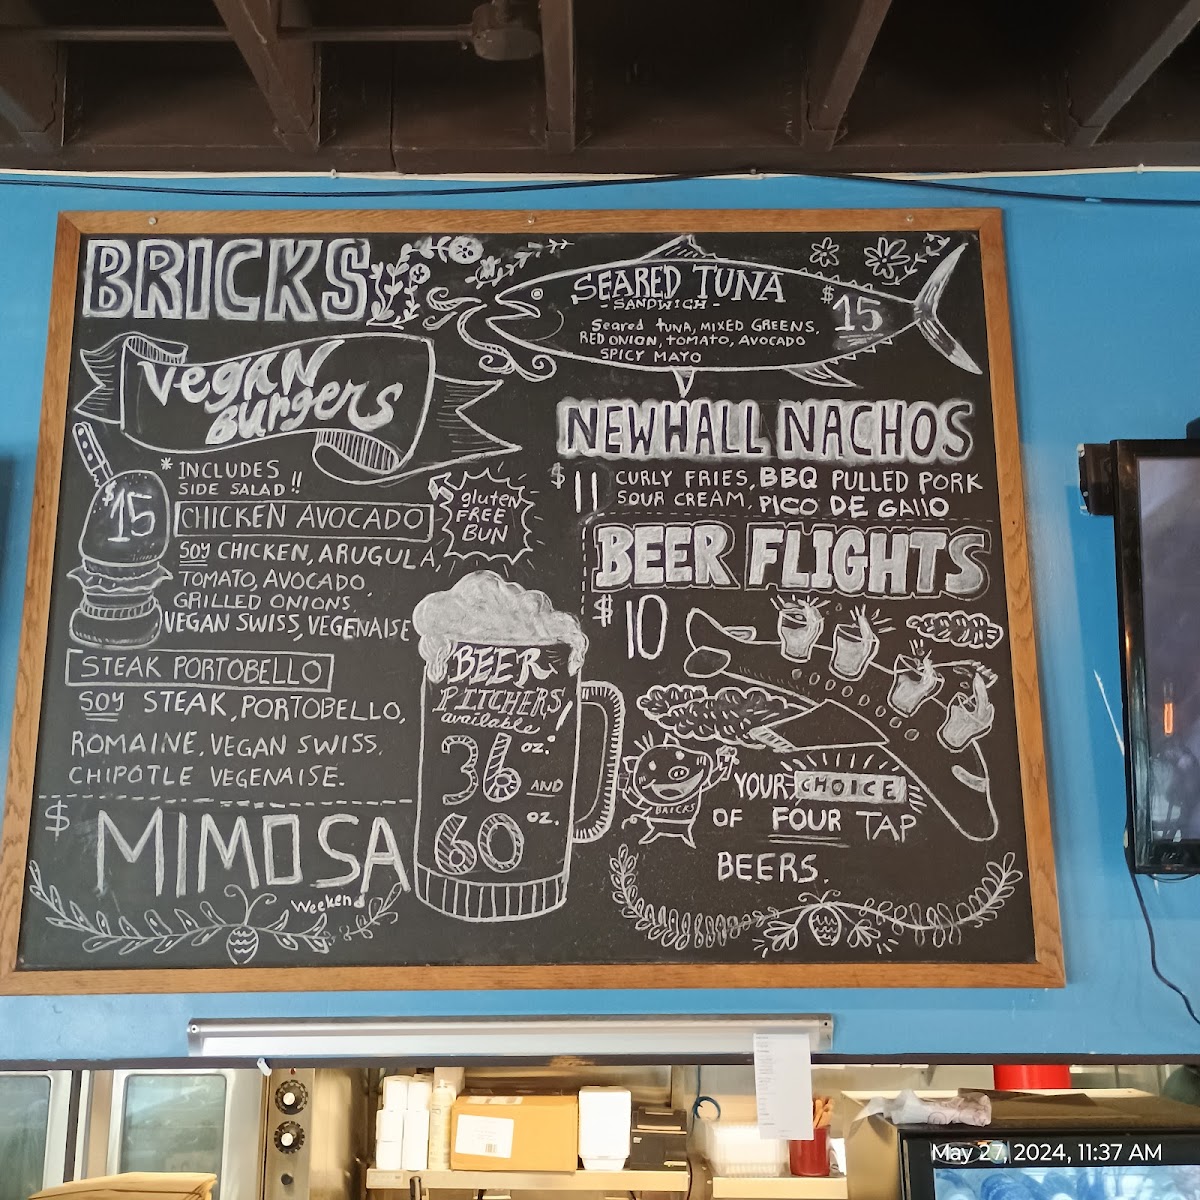 BRICKS
Vegan
Burgers
* INCLUDES
SIDE SALAD!!
$15
CHICKEN AVOCADO
gluten
FREE
BUN
SOY CHICKEN, ARUGULA,
TOMATO, AVOCADO
GRILLED ONIONS
VEGAN SWISS, VEGENAISE
STEAK PORTOBELLO
SOY STEAK, PORTOBELLO,
ROMAINE, VEGAN SWISS,
CHIPOTLE VEGENAISE.
$
MIMOSA
Weekend
BEER
PITCHERS
available!
36 oz. AND
60 oz.
SEARED TUNA
- SANDWICH -
$15
Seared tuna, MIXED GREENS,
RED ONION, TOMATO, AVOCADO
SPICY MAYO
NEWHALL NACHOS
$11
CURLY FRIES, BBQ PULLED PORK
SOUR CREAM, PICO DE GAllO
BEER FLIGHTS
$10
BRICKS
YOUR CHOICE
OF FOUR TAP
BEERS.
May 27, 2024, 11:37 AM